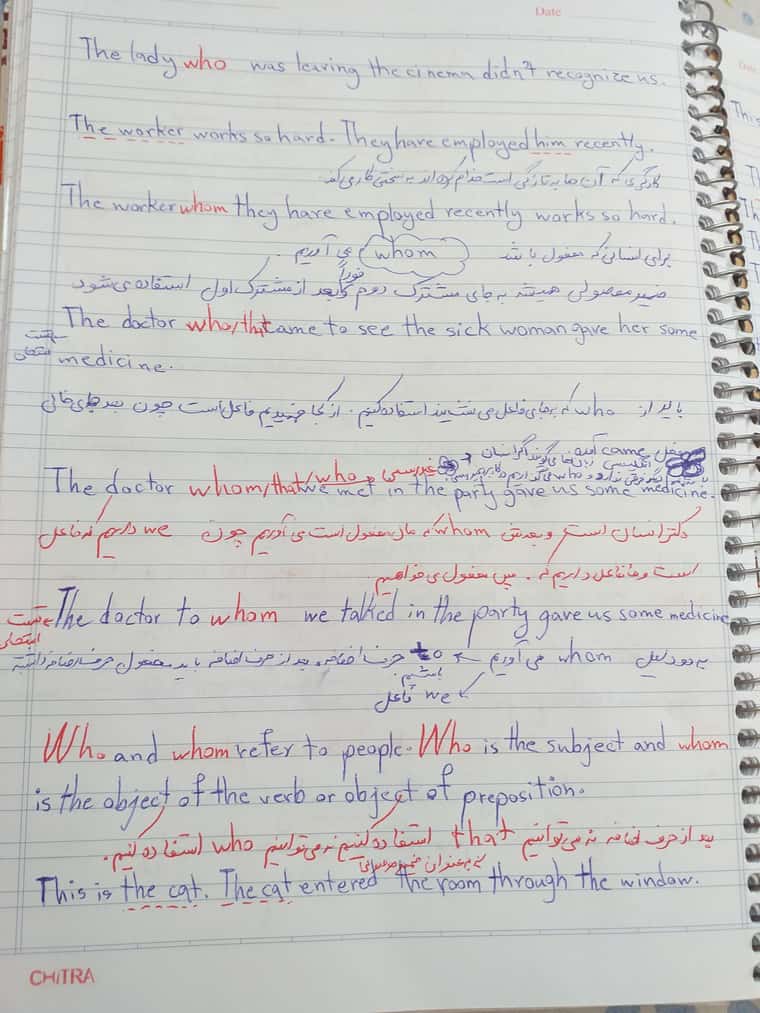 Date
The lady who was leaving the cinema didn't recognize us.
The worker works so hard. They have employed him recently.
کارگری که آن ها به تازگی استخدام کرده اند به سختی کار می کند.
The worker whom they have employed recently works so hard.
برای انسانی که مفعول باشد whom می آوریم.
ضمیر موصولی همیشه به جای مشترک دوم فوراً بعد از مشترک اول استفاده می شود
The doctor who/that came to see the sick woman gave her some
medicine.
باید از who که به جای فاعل می نشیند استفاده کنیم. از کجا فهمیدیم فاعل است چون بعد جای خالی
فعل came آمده
The doctor whom/that/who غیررسمی we met in the party gave us some medicine.
دکتر انسان است و بعدش whom که مال مفعول است می آوریم چون we داریم که فاعل
است و ما فاعل داریم که. پس مفعول می خواهیم
The doctor to whom we talked in the party gave us some medicine
به دو دلیل whom می آوریم to حرف اضافه، بعد از حرف اضافه باید مفعول حرف اضافه داشته
باشیم.
we فاعل
Who and whom refer to people. Who is the subject and whom
is the object of the verb or object of preposition.
بعد از حرف اضافه نه می توانیم that استفاده کنیم نه می توانیم who استفاده کنیم.
به عنوان ضمیر موصولی
This is the cat. The cat entered the room through the window.
CHiTRA